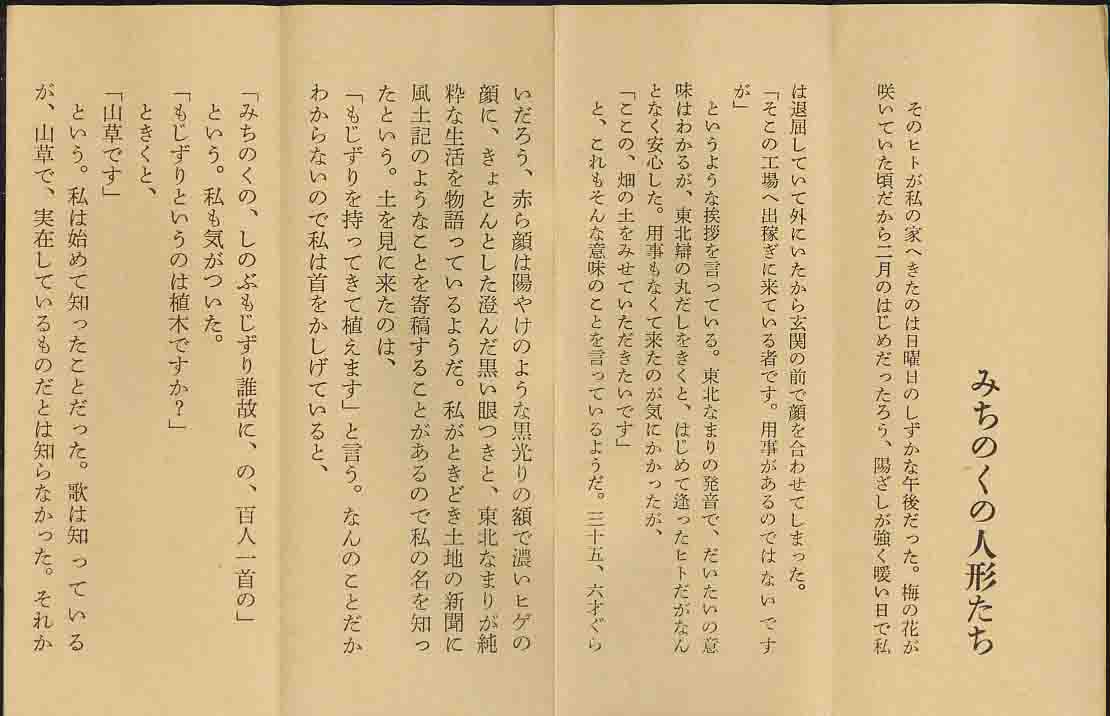 みちのくの人形たち
そのヒトが私の家へきたのは日曜日のしずかな午後だった。梅の花が
咲いていた頃だから二月のはじめだったろう、陽ざしが強く暖い日で私
は退屈していて外にいたから玄関の前で顔を合わせてしまった。
「そこの工場へ出稼ぎに来ている者です。用事があるのではないです
が」
というような挨拶を言っている。東北なまりの発音で、だいたいの意
味はわかるが、東北辯の丸だしをきくと、はじめて逢ったヒトだがなん
となく安心した。用事もなくて来たのが気にかかったが、
「ここの、畑の土をみせていただきたいです」
と、これもそんな意味のことを言っているようだ。三十五、六才ぐら
いだろう、赤ら顔は陽やけのような黒光りの額で濃いヒゲの
顔に、きょとんとした澄んだ黒い眼つきと、東北なまりが純
粋な生活を物語っているようだ。私がときどき土地の新聞に
風土記のようなことを寄稿することがあるので私の名を知っ
たという。土を見に来たのは、
「もじずりを持ってきて植えます」と言う。なんのことだか
わからないので私は首をかしげていると、
「みちのくの、しのぶもじずり誰故に、の、百人一首の」
という。私も気がついた。
「もじずりというのは植木ですか?」
ときくと、
「山草です」
という。私は始めて知ったことだった。歌は知っている
が、山草で、実在しているものだとは知らなかった。それか